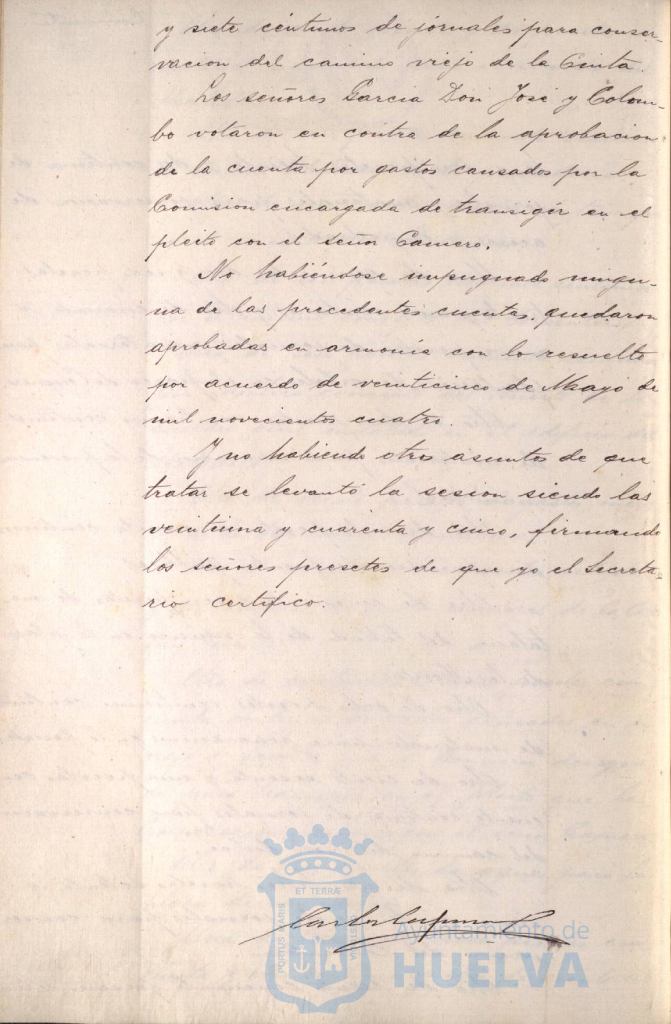 y siete céntimos de jornales para conser-
vacion del camino viejo de la Cinta.
Los señores Garcia Don José y Colom-
bo votaron en contra de la aprobacion
de la cuenta por gastos causados por la
Comision encargada de transigir en el
pleito con el señor Camero.
No habiéndose impugnado ningu-
na de las precedentes cuentas, quedaron
aprobadas en armonia con lo resuelto
por acuerdo de veinticinco de Mayo de
mil novecientos cuatro.
Y no habiendo otros asuntos de que
tratar se levantó la sesion siendo las
veintiuna y cuarenta y cinco, firmando
los señores presetes de que yo el Secreta-
rio certifico.
ET TERRÆ
PORTUS MARIS
CUSTODIA
Ayuntamiento de
HUELVA